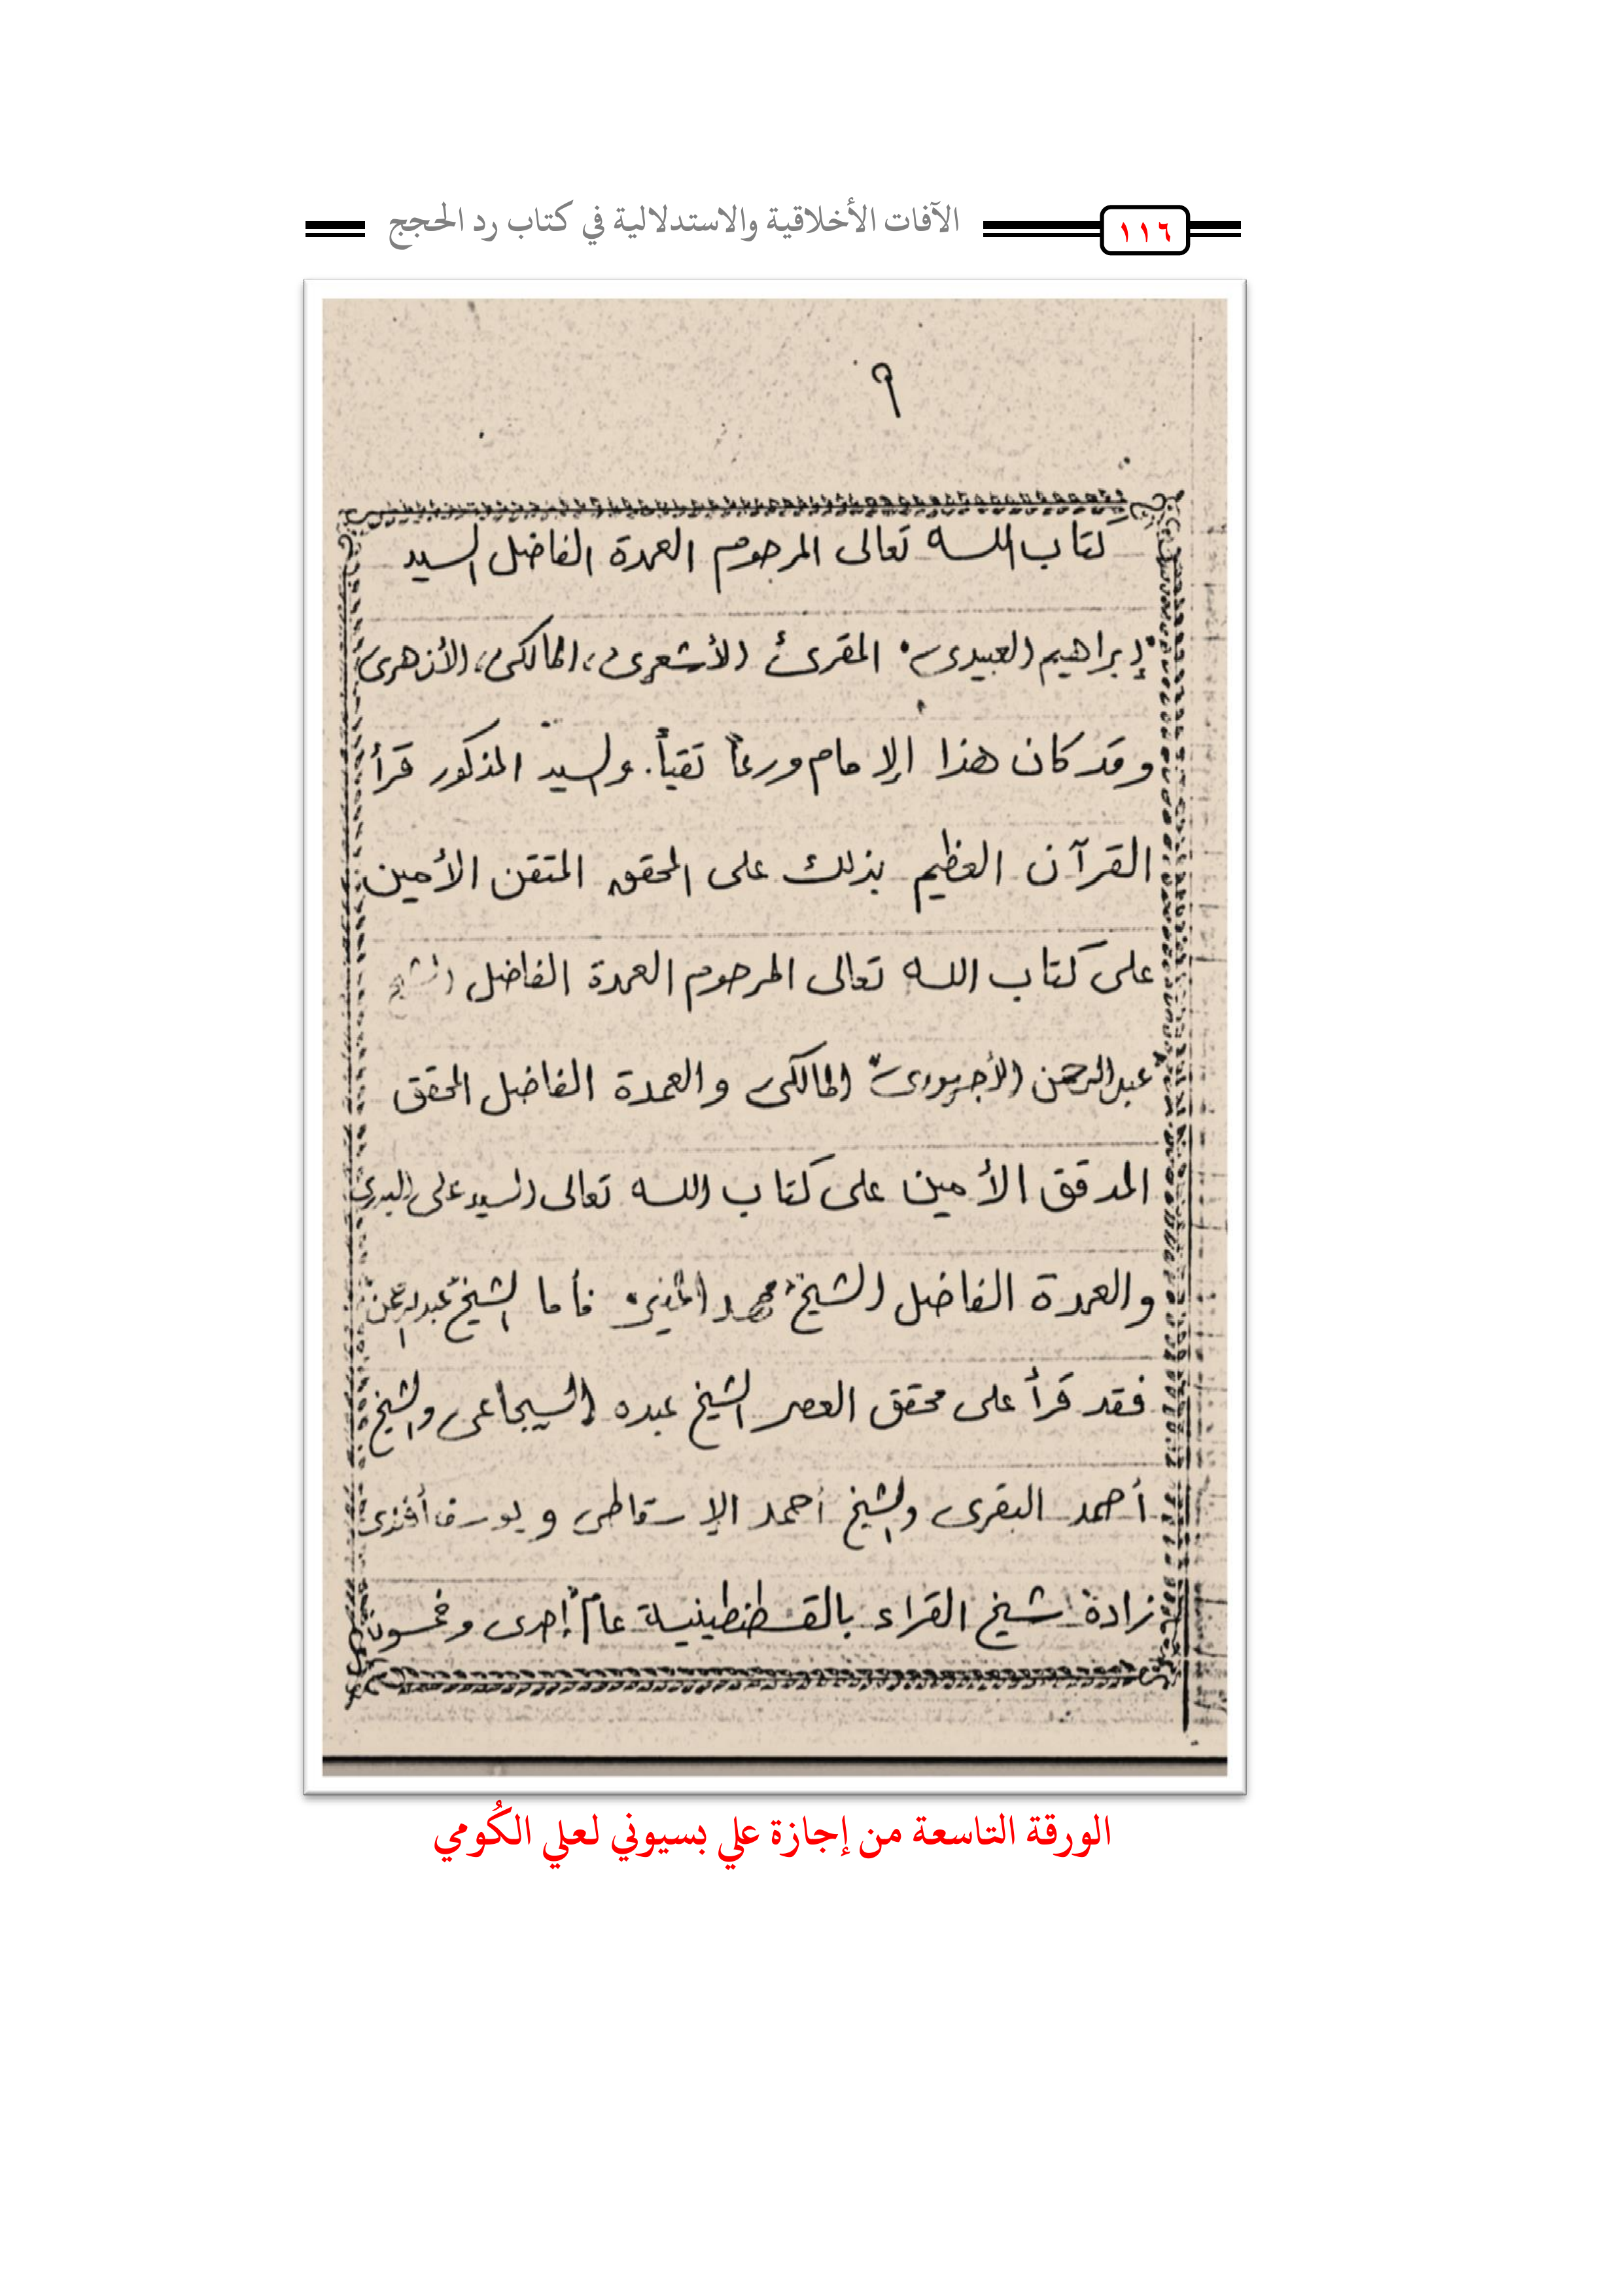 ١١٦
الآفات الأخلاقية والاستدلالية في كتاب رد الحجج
٩
كتاب الله تعالى المرحوم العمدة الفاضل السيد
إبراهيم العبيدى المقرئ الأشعرى، المالكى، الأزهرى
وقد كان هذا الإمام ورعاً تقياً. والسيد المذكور قرأ
القرآن العظيم بذلك على المحقق المتقن الأمين
على كتاب الله تعالى المرحوم العمدة الفاضل الشيخ
عبدالرحمن الأجهورى المالكى والعمدة الفاضل المحقق
المدقق الأمين على كتاب الله تعالى السيد على البدرى
والعمدة الفاضل الشيخ محمد المنير فأما الشيخ عبدالرحمن
فقد قرأ على محقق العصر الشيخ عبده السجاعى والشيخ
أحمد البقرى والشيخ أحمد الإسقاطى ويوسف أفندى
زادة شيخ القراء بالقسطنطينية عام إحدى وخمسون
الورقة التاسعة من إجازة علي بسيوني لعلي الكُومي